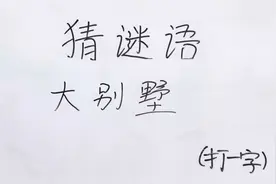 猜谜语
大别墅
(打一字)